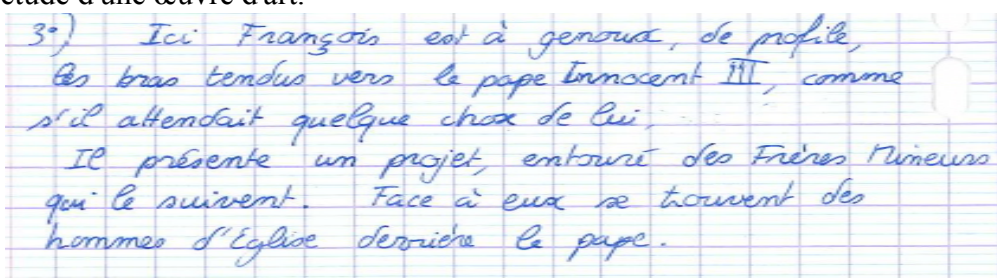 étude d'une œuvre d'art.
3°) Ici François est à genoux, de profile,
les bras tendus vers le pape Innocent III, comme
s'il attendait quelque chose de lui.
Il présente un projet, entouré des Frères Mineurs
qui le suivent. Face à eux se trouvent des
hommes d'Eglise derrière le pape.